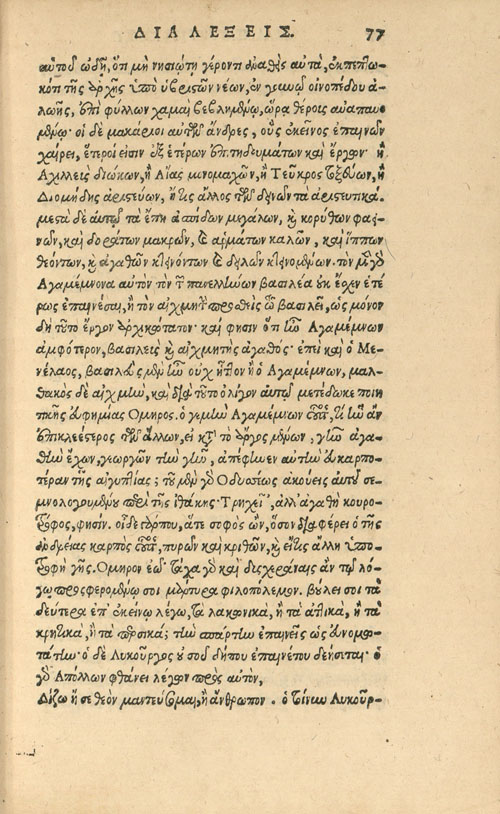 ΔΙΑΛΕΞΕΙΣ. 77
αὐτοῦ ᾠδῇ, ὅτι μὴ νησιώτῃ γέροντι ὁραθεὶς αὐτὰ, ἐκπεπτω-
κότι τῆς ἀρχῆς ὑπὸ ὑβριστῶν νέων, ἐν γουνῷ οἰνοπέδου ἀ-
λωῆς, ἐπὶ φύλλων χαμαὶ βεβλημένῳ, ὥρᾳ θέρους ἀναπαυο
μένῳ· οἱ δὲ μακάριοι αὐτῶν ἄνδρες, οὓς ἐκεῖνος ἐπαινῶν
χαίρει, ἕτεροί εἰσιν ἐξ ἑτέρων ἐπιτηδευμάτων καὶ ἔργων· ἢ
Ἀχιλλεὺς διώκων, ἢ Αἴας μονομαχῶν, ἢ Τεῦκρος τοξεύων, ἢ
Διομήδης ἀριστεύων, ἤ τις ἄλλος τῶν δεινῶν τὰ ἀριστευτικά.
μεστὰ δὲ αὐτῷ τὰ ἔπη ἀσπίδων μεγάλων, καὶ κορύθων φαει-
νῶν, καὶ δοράτων μακρῶν, καὶ ἁρμάτων καλῶν, καὶ ἵππων
θεόντων, καὶ ἀγαθῶν κτεινόντων καὶ δειλῶν κτεινομένων. τὸν μὲν γὰρ
Ἀγαμέμνονα αὐτὸν τὸν τῶν πανελλήνων βασιλέα οὐκ ἔσχεν ἑτέ
ρως ἐπαινέσαι, ἢ τὸν αἰχμητὴν προσθεὶς τῷ βασιλεῖ, ὡς μόνον
δὴ τοῦτο ἔργον ἀρχικώτατον· καὶ φησὶν ὅτι ἦν Ἀγαμέμνων
ἀμφότερον, βασιλεὺς καὶ αἰχμητὴς ἀγαθός· ἐπεὶ καὶ ὁ Με-
νέλαος, βασιλεὺς μὲν ἦν οὐχ ἧττον ἢ ὁ Ἀγαμέμνων, μαλ-
θακὸς δὲ αἰχμὴν, καὶ διὰ τοῦτο ὀλίγον αὐτῷ μετέδωκε ποιη
τικῆς εὐφημίας Ὅμηρος. ὁ γε μὴν Ἀγαμέμνων οὗτος, τί ἦν ἂν
ἐπικλεέστερος τῶν ἄλλων, εἰ κατὰ τὸ ἄργος μένων, γῆν ἀγα-
θὴν ἔχων, γεωργῶν τὴν γῆν, ἀπέφηνεν αὐτὴν εὐκαρπο-
τέραν τῆς αἰγυπτίας; τοῦ μὲν γὰρ Ὀδυσσέως ἀκούεις αὐτοῦ σε-
μνολογουμένου περὶ τῆς ἰθάκης· Τρηχεῖ', ἀλλ' ἀγαθὴ κουρο-
τρόφος, φησίν. οἶδε γάρ που, ἅτε σοφὸς ὢν, ὅσον διαφέρει ὁ τῆς
ἀνδρείας καρπὸς οὗτος, πυρῶν καὶ κριθῶν, καὶ εἴ τις ἄλλη ὑπο-
τροφὴ γῆς. Ὅμηρον ἐῶ· τάχα γὰρ καὶ δυσχεράναις ἂν τῷ λό-
γῳ προσφερομένῳ σοι μάρτυρα φιλοπόλεμον. βούλει σοι τὰ
δεύτερα ἐπ' ἐκείνῳ λέγω, τὰ λακωνικά, ἢ τὰ ἀττικὰ, ἢ τὰ
κρητικὰ, ἢ τὰ περσικά; τὴν σπάρτην ἐπαινεῖς ὡς εὐνομω-
τάτην· ὁ δὲ Λυκοῦργος οὐ σοῦ δήπου ἐπαινέτου δεήσεται· ὁ
γὰρ Ἀπόλλων φθάνει λέγων πρὸς αὐτὸν,
Δίζω ἤ σε θεὸν μαντεύσομαι, ἢ ἄνθρωπον. ὁ τοίνυν Λυκοῦρ-